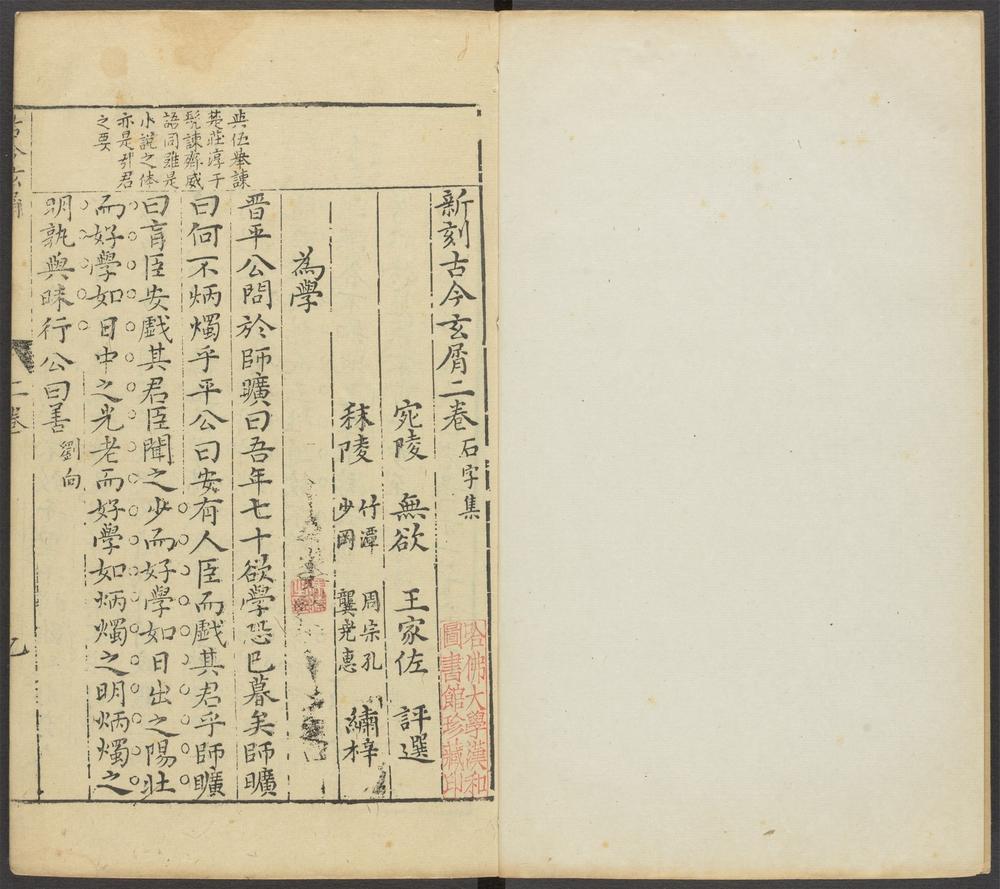 新刻古今玄屑二卷 石字集
宛陵 無欲 王家佐 評選
秣陵 竹潭 周宗孔 少岡 龔尭惠 繡梓
為學
晋平公問於師曠曰吾年七十欲學恐巳暮矣師曠
曰何不炳燭乎平公曰安有人臣而戲其君乎師曠
曰盲臣安戲其君臣聞之少而好學如日出之陽壯
而好學如日中之光老而好學如炳燭之明炳燭之
明孰與昧行公曰善 劉向
與伍舉諫
楚莊淳于
髠諫齊威
語同雖是
小說之体
亦是引君
之要
古今玄屑
二卷
乙
哈佛大學漢和
圖書館珍藏印